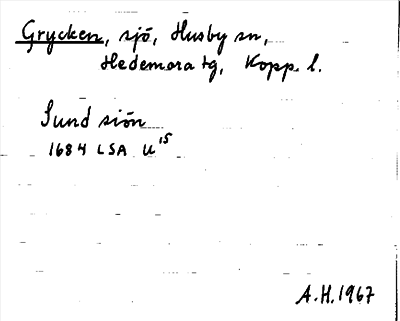 Grycken, sjö, Husby sn,
Hedemora tg, Kopp. l.
Sund siön
1684 LSA U15
A.H. 1967